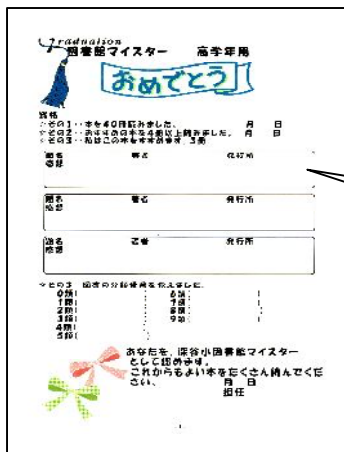 Graduation
図書館マイスター 高学年用
おめでとう
資格
☆その1・・本を40冊読みました。 月 日
☆その2・・おすすめの本を4冊以上読みました。 月 日
☆その3・・私はこの本をすすめます。3冊
題名 著者 発行所
感想
題名 著者 発行所
感想
題名 著者 発行所
感想
☆その3 図書の分類番号を覚えました。
0類( ) 6類( )
1類( ) 7類( )
2類( ) 8類( )
3類( ) 9類( )
4類( )
5類( )
あなたを、深谷小図書館マイスター
として認めます。
これからもよい本をたくさん読んでくだ
さい。 月 日
担任